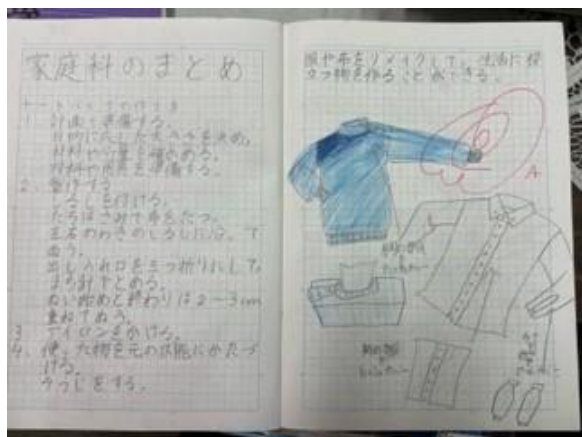 家庭科のまとめ
トートバッグの作り方
1 計画・準備する。
目的に応じた大きさを決め、
材料や分量を確かめる。
材料や用具を準備する。
2.製作する
しるしを付ける。
たちばさみで布をたつ。
左右のわきのしるしに沿って
ぬう。
出し入れ口を三つ折りにして、
まち針でとめる。
ぬい始めと終わりは2〜3cm
重ねてぬう。
3 アイロンをかける。
4.使った物を元の状態にかたづ
ける。
そうじをする。
服や布をリメイクして、生活に役
立つ物を作ることができる。
A